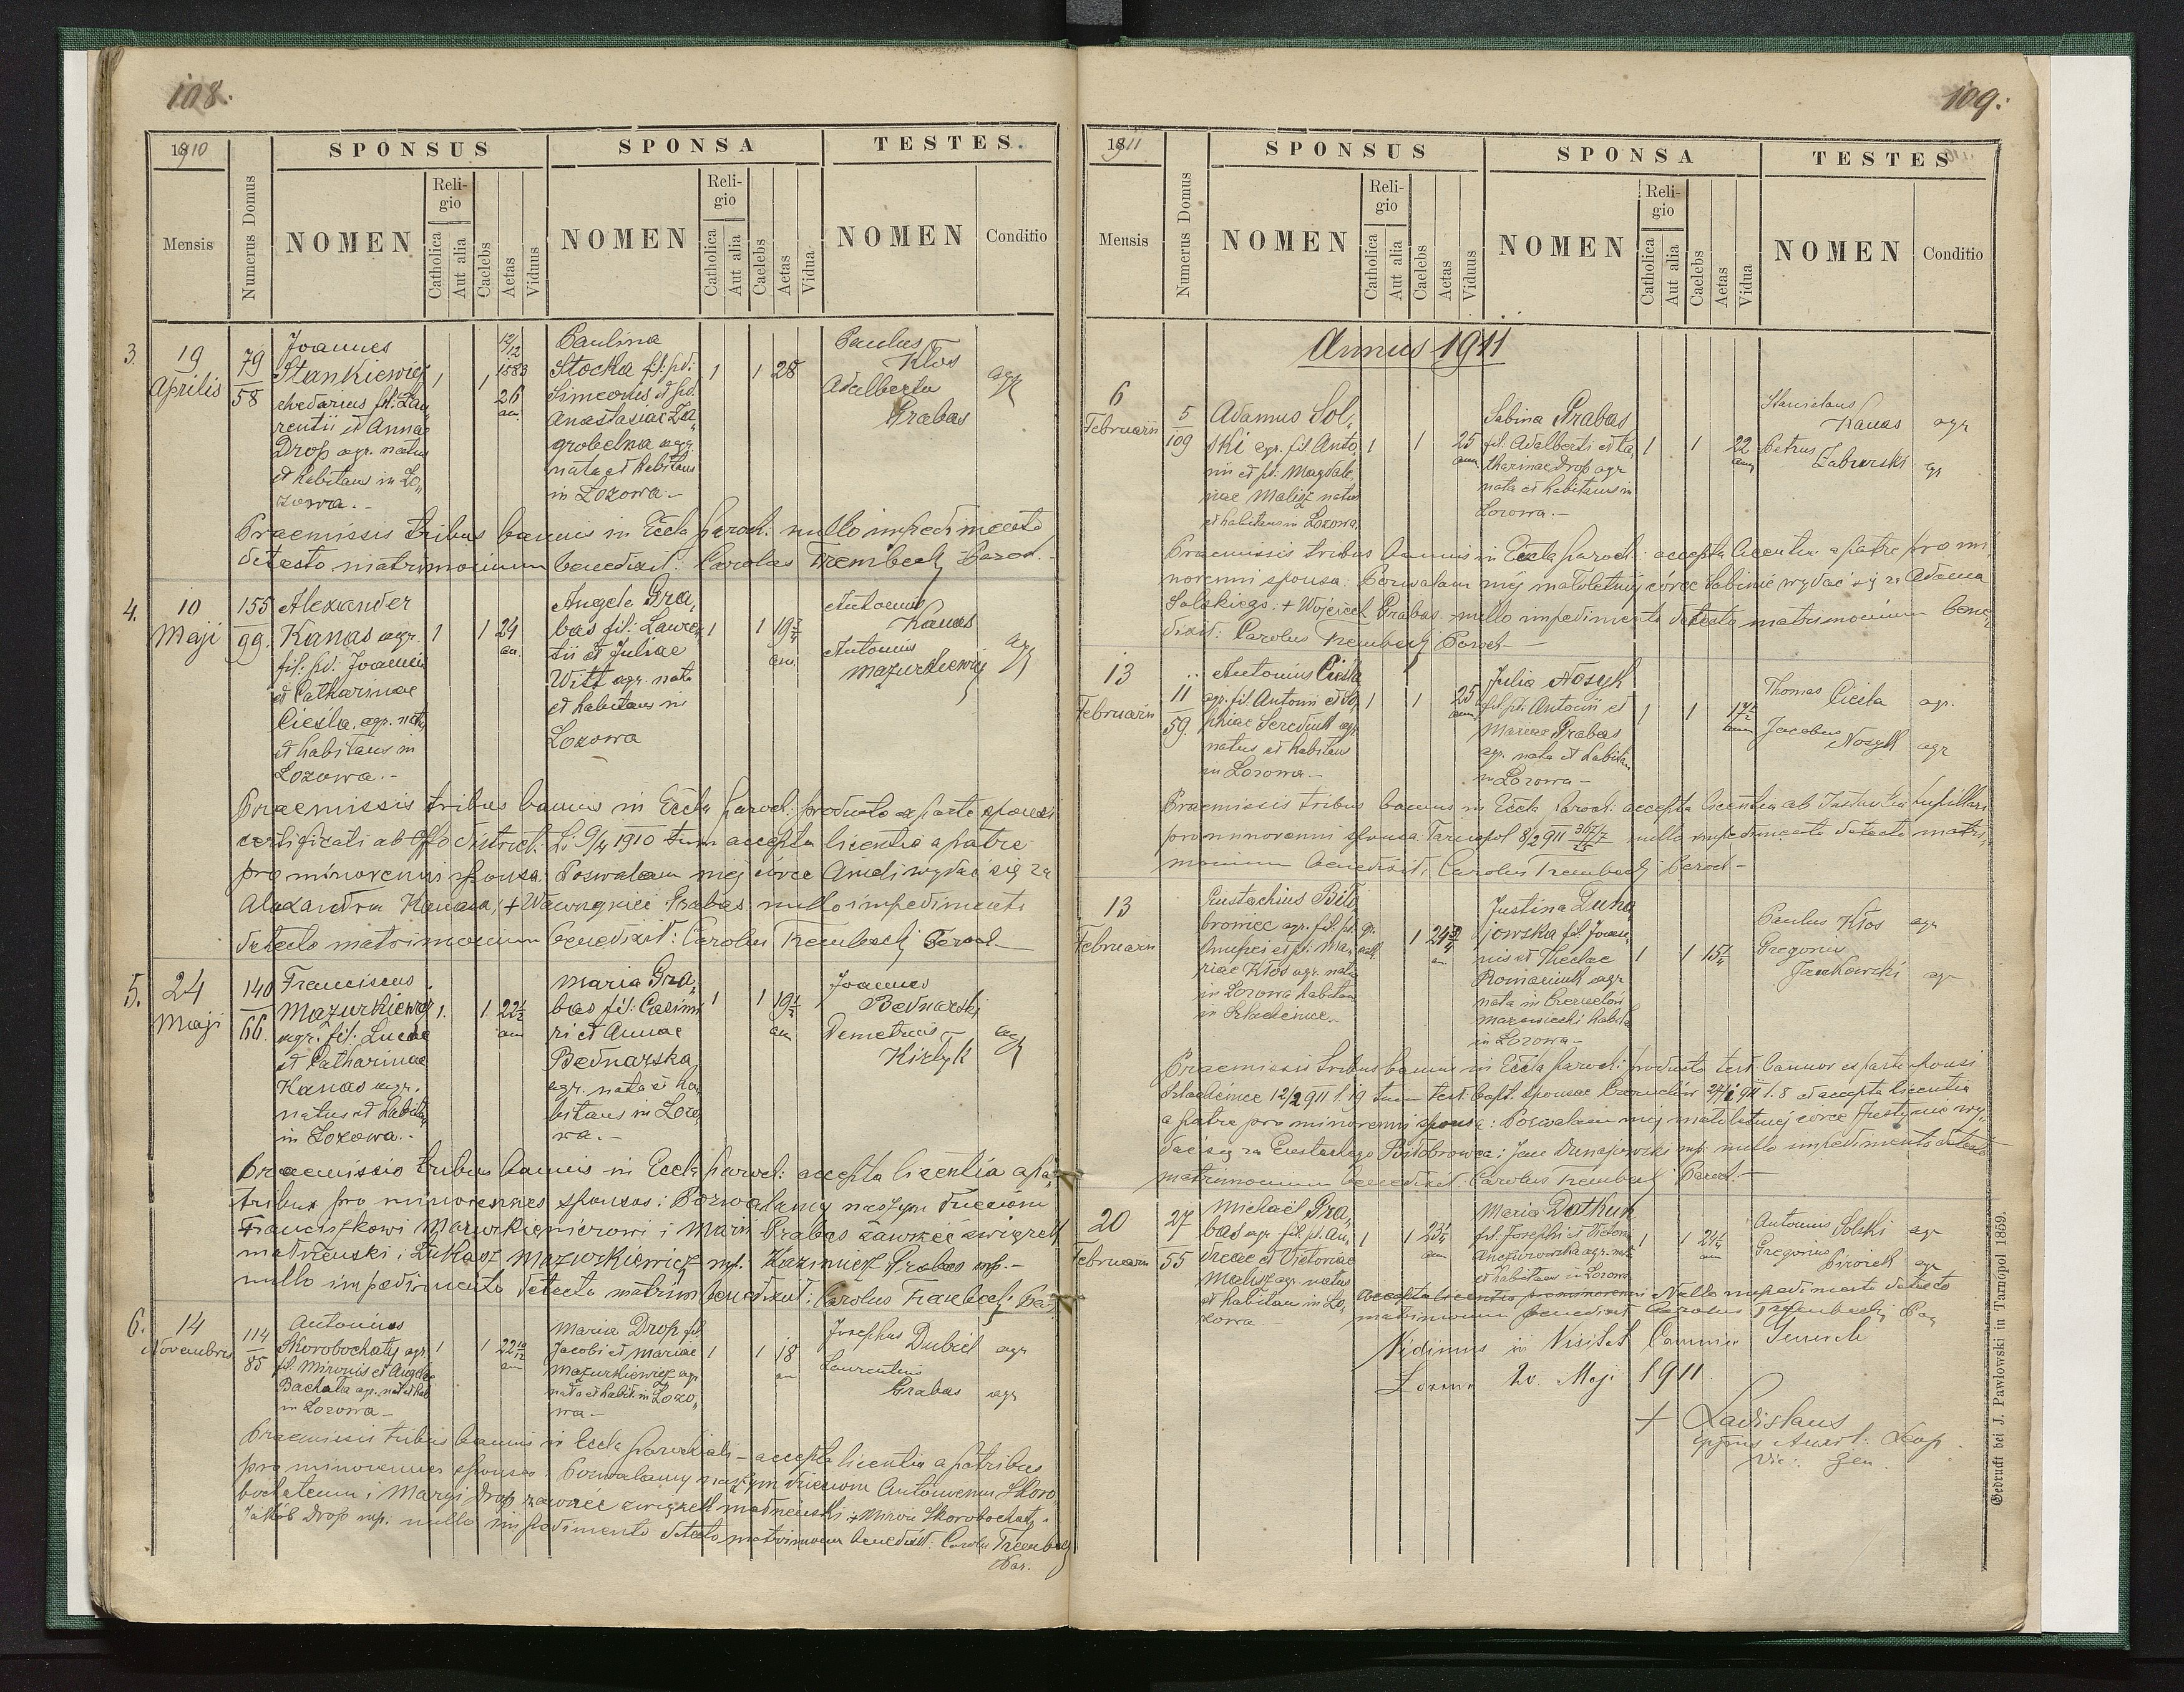 108.
1910
SPONSUS
SPONSA
TESTES.
Mensis
Numerus Domus
NOMEN
Religio
Catholica
Aut alia
Caelebs
Aetas
Viduus
NOMEN
Religio
Catholica
Aut alia
Caelebs
Aetas
Vidua
NOMEN
Conditio
3.
19
Aprilis
79
58
Joannes
Stankiewicz
fil: Lau
rentii et Annae
Drop agr. natus
et habitans in Lo,,
zowa.-
1
1
12/12
1883
26
an.
Paulina
Stocka fil: pd.
Simeonis et pd.
Anastasiae Za,,
grobelna agr.
nata et habitans
in Lozowa.-
1
1
28
Paulus
Kłos
Adalbertus
Grabas
agr
Praemissis tribus bannis in Eccla paroch: nullo impedimento
detecto matrimonium benedixit: Carolus Trembecky Paroch.-
4.
10
Maji
155
99.
Alexander
Kanas agr.
fil: pd. Joannis
et Catharinae
Cieśla, agr. natus
et habitans in
Lozowa.-
1
1
24
an.
Angela Gra,,
bas fil: Lauren
tii et Juliae
Witt agr. nata
et habitans in
Lozowa
1
1
19 3/4
an.
Antonius
Kanas
Antonius
Mazurkiewicz
agr
Praemissis tribus bannis in Eccla paroch: producto ex parte sponsi
certificati ab Offo district: 9/4 1910 tum accepta licentia a patre
pro minorenni sponsa: Pozwalam mej córce Anieli wydać się za
Alexandra Kanasa; + Wawrzyniec Grabas nullo impedimento
detecto matrimonium benedixit: Carolus Trembecky Paroch-
5.
24
Maji
140
66.
Franciscus
Mazurkiewicz
agr. fil: Lucae
et Catharinae
Kanas agr.
natus et habitans
in Lozowa.-
1.
1
22 1/2
an
Maria Gra,,
bas fil: Casimi
ri et Annae
Bednarska
agr. nata et ha,,
bitans in Lozo,,
wa.-
1
1
19 1/2
an
Joannes
Bednarski
Demetrius
Kizłyk
agr
Praemissis tribus bannis in Eccla paroch: accepta licentia a pa,,
tribus pro minorennes sponsos: Pozwalamy naszym dzieciom
Franciszkowi Mazurkiewiczowi i Marii Grabas zawrzeć związek
małżeński: Łukasz Mazurkiewicz mp. Kazimierz Grabas mp.-
nullo impedimento detecto matrim benedixit: Carolus Trembecky Par
6.
14
Novembris
114
85
Antonius
Skorobochaty agr.
fil. Mironis et Angelae
Bachata agr. nat et hab
in Lozowa-
1
1
22 10/12
an
Maria Drop fil.
Jacobi et Mariae
Mazurkiewicz agr
nata et habit. in Lozo,,
wa-
1
1
18
an
Josephus Dubiel
agr
Laurentius
Grabas
agr
Praemissis tribus bannis in Eccla parochiali- accepta licentia a patribus
pro minorennes sponsos: Pozwalamy naszym dzieciom Antoniemu Skoro,,
bochatemu i Maryi Drop zawrzeć związek małżeński: + Miron Skorobochaty.
Jakób Drop mp: nullo impedimento detecto matrimonium benedixit: Carolus Trembecky
Par.
109.
1911
SPONSUS
SPONSA
TESTES
Mensis
Numerus Domus
NOMEN
Religio
Catholica
Aut alia
Caelebs
Aetas
Viduus
NOMEN
Religio
Catholica
Aut alia
Caelebs
Aetas
Vidua
NOMEN
Conditio
Annus 1911
6
Februarii
5
109
Adamus Sol,,
ski agr. fil. Anto
nii et pd: Magdale
nae Malisz natus
et habitans in Lozowa.
1
1
25
ann.
Sabina Grabas
fil: Adalberti et Ca,,
tharinae Drop agr
nata et habitans in
Lozowa.-
1
1
22
ann
Stanislaus
Kanas
agr
Petrus
Zaburski
agr
Praemissis tribus bannis in Eccla paroch: accepta licentia a patre pro mi,,
norenni sponsa: Pozwalam mej małoletniej córce Sabinie wydać się za Adama
Solskiego: + Wojciech Grabas - nullo impedimento detecto matrimonium bene,,
dixit: Carolus Trembecky Paroch-
13
Februarii
11
59.
Antonius Cieśla
agr. fil. Antonii et So,,
phiae Serediuk agr
natus et habitans
in Lozowa.-
1
1
25
ann.
Julia Nosyk
fil. pd: Antonii et
Mariae Grabas
agr. nata et habitans
in Lozowa-
1
1
17 1/2
ann
Thomas
Cieśla
agr.
Jacobus
Nosyk
agr
Praemissis tribus bannis in Eccla Paroch: accepta licentia ab Instantia pupillari
pro minorenni sponsa Tarnopol 8/2 911 nullo impedimento detecto matri,,
monium benedixit: Carolus Trembecky Paroch-
13
Februarii
Eustachius Biło
browiec agr. fil. pd.
Onuprei et pd: Ma,,
riae Kłos agr. natus
in Lozowa habitans
in Szlachcince.-
gr.
cath
1
24 3/4
an
Justina Duna
jowska fil. Joan,,
nis et Theclae
Romaniuk agr
nata in Czernelów
mazowiecki habita
in Lozowa-
1
1
15 1/4
Paulus Kłos
agr
Gregorius
Jankowski
agr
Praemissis tribus bannis in Eccla paroch: producto test. bannor ex parte sponsi
Szlachcince 12/2 911 l. 19 tum test. bapt. sponsae Czernelów 27/1 911 l. 8 et accepta licentia
a patre pro minorenni sponsa: Pozwalam mej małoletniej córce Justynie wy,,
dać się za Eustachego Biłobrowca: Jan Dunajowski mp. nullo impedimento detecto
matrimonium benedixit: Carolus Trembecky Paroch.-
20
Februarii
27
55
Michaël Gra,,
bas agr fil. pd. An,,
dreae et Victoriae
Malisz agr. natus
et habitans in Lo,,
zowa-
1
1
23 1/4
an
Maria Datkun
fil. Josephi et Victoriae
agr. nata
et habitans in Lozowa
1
1
24 1/4
an
Antonius Solski
agr
Gregorius
Piroick
agr
accepta licentia pro minorenni Nullo impedimento detecto
matrimonium benedixit Carolus Trembecky Par
Vidimus in Visitat Canonica
20. Maji 1911
+ Ladislaus
Eppus Auxil: Leop.
Vic: Gen.
Gedruckt bei J. Pawłowski in Tarnopol 1859.